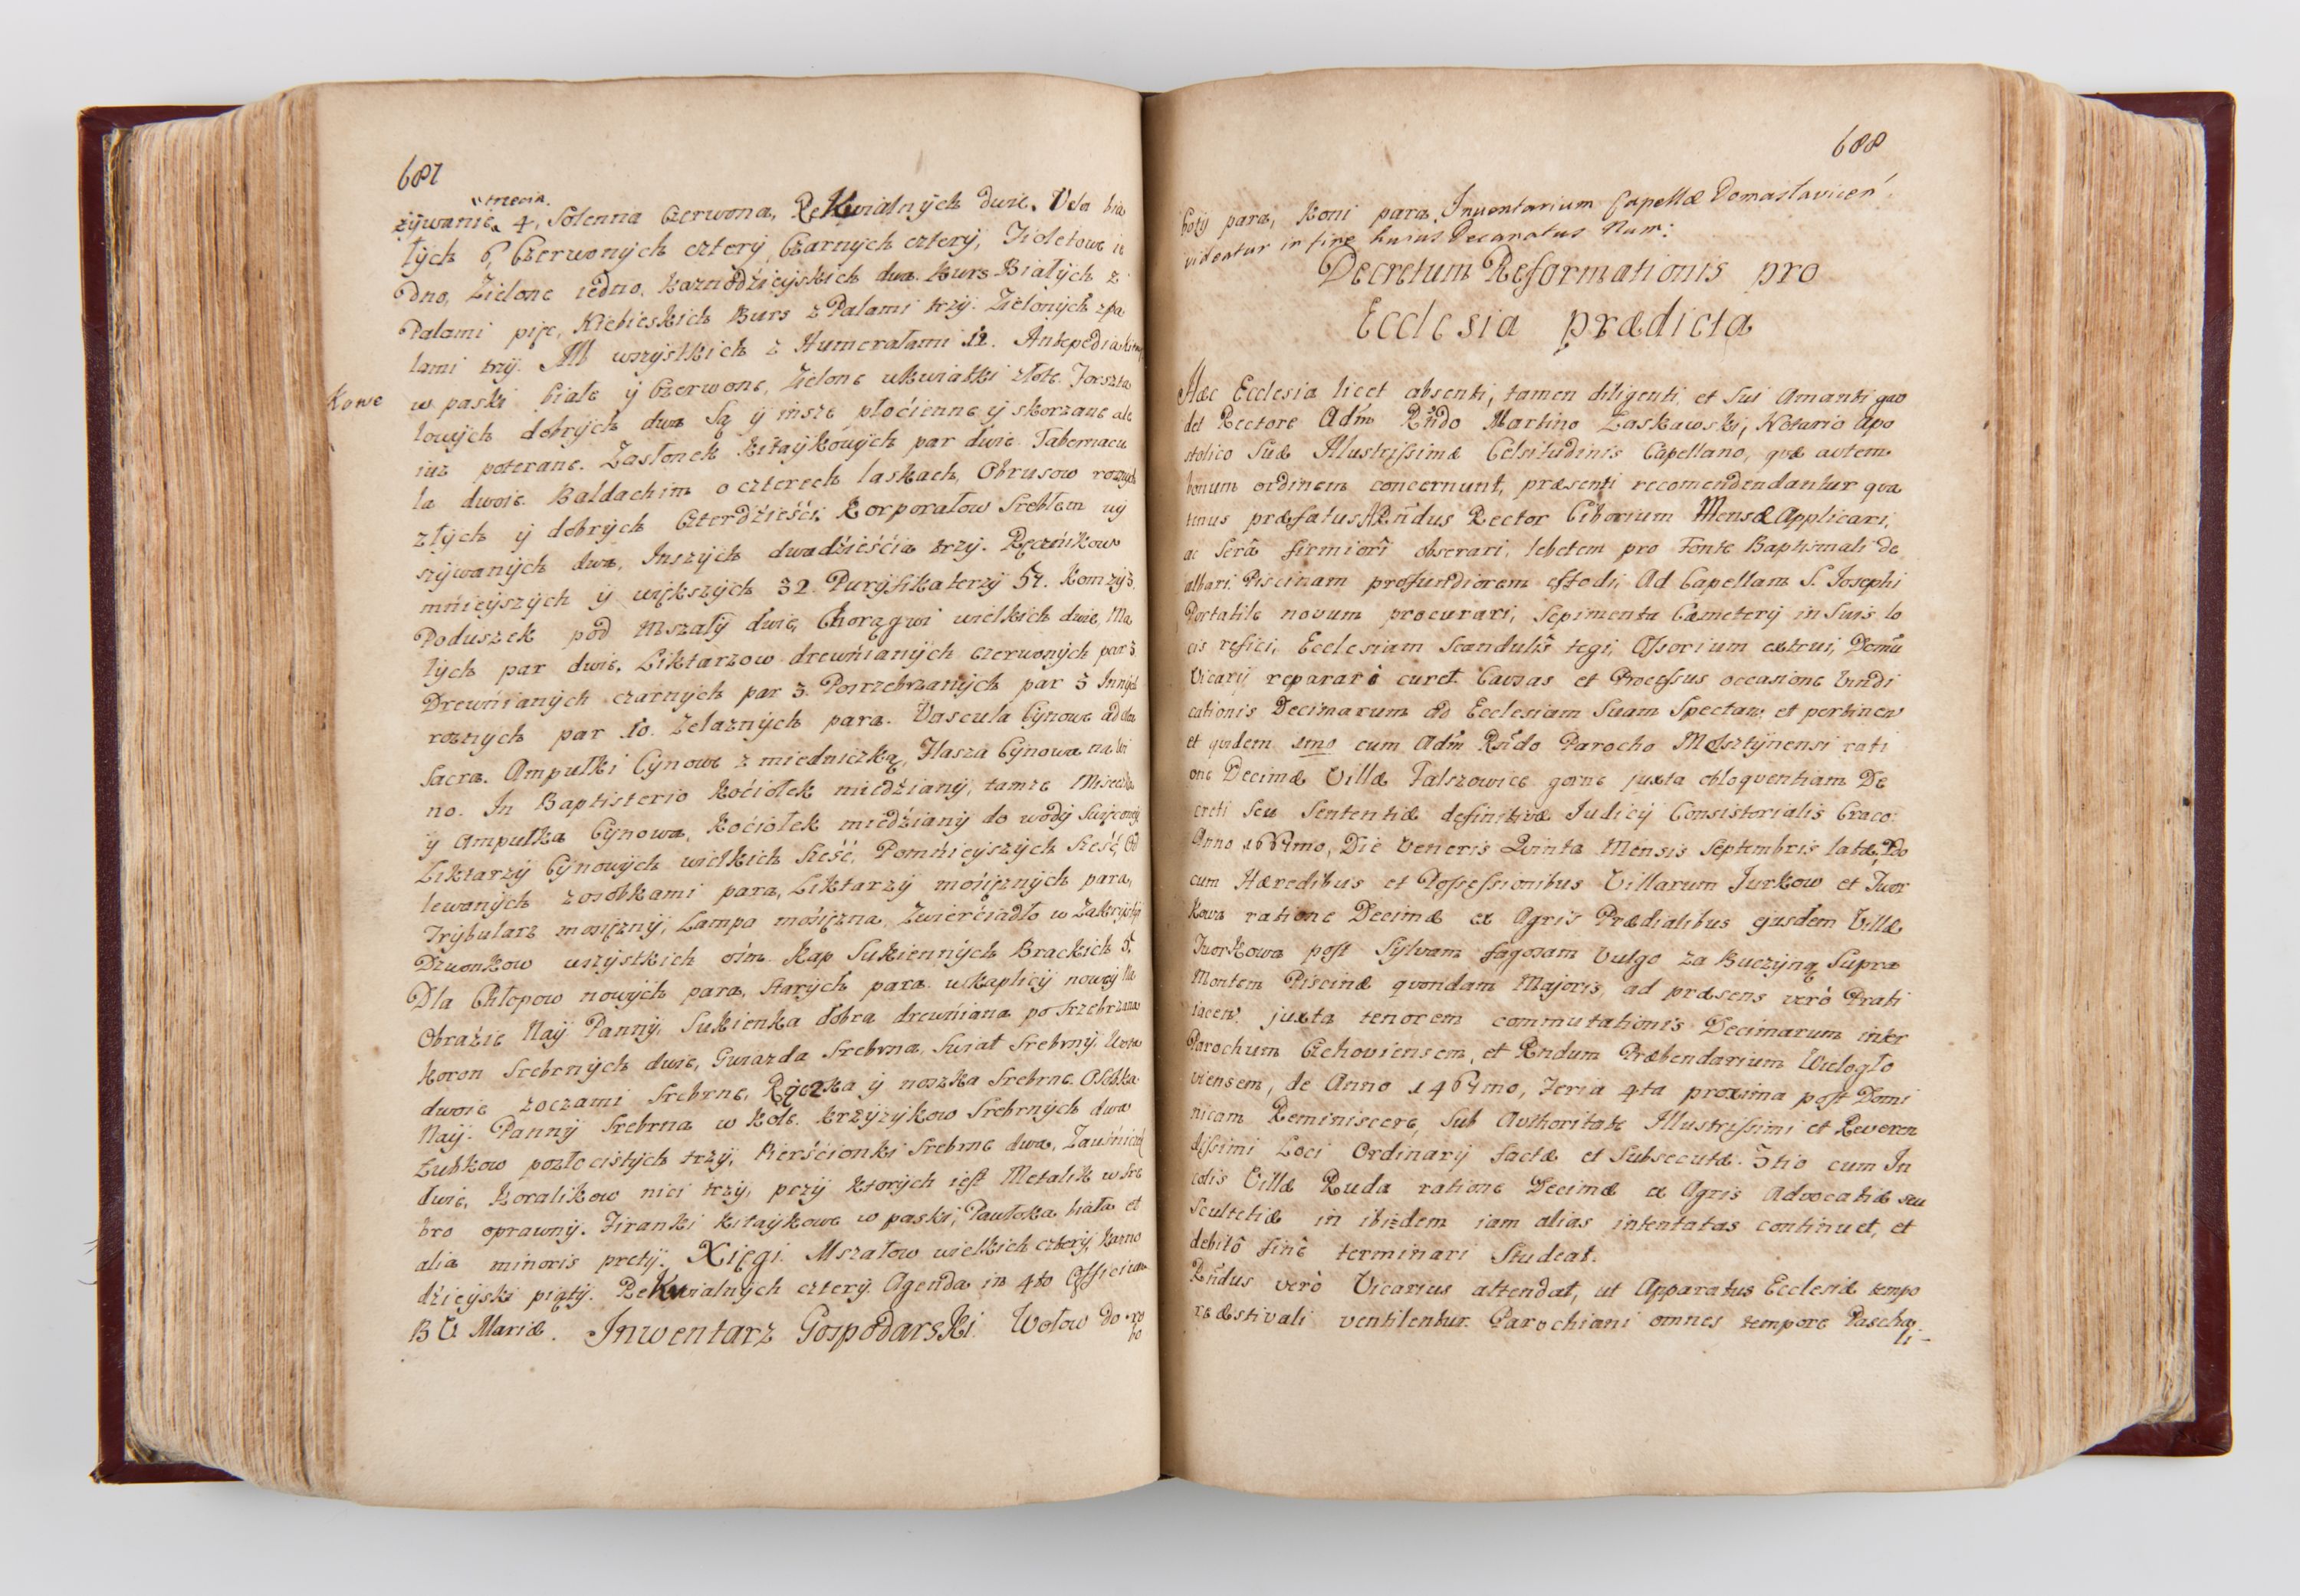 687
żywania 4, Solenna Czerwona, Rekwialnych dwie. Vela bia
łych 6, Czerwonych cztery, Czarnych cztery, Fioletowe ie
dno, Zielone iedno, Kaznodzieyskich dwa. Burs Białych z
Palami pięc, Niebieskich Burs z Palami trzy. Zielonych z pa
lami trzy. Alb wszystkich z Humerałami 12. Antepedia
Kowe
w paski białe y Czerwone, Zielone w kwiatki złote. Forszta
lowych dobrych dwa Są y insze płocienne y skorzane ale
iuz poterane. Zasłonek kitaykowych par dwie. Tabernacu
la dwoie. Baldachim o czterech laskach, Obrusow roznych
złych y dobrych Czterdzieści, Korporałow Srebłem wy
szywanych dwa, Inszych dwadzieścia trzy. Ręcznikow
mnieyszych y większych 32. Puryfikaterzy 54. Komzy 3.
Poduszek pod Mszały dwie, Chorągwi wielkich dwie, Ma
łych par dwie, Liktarzow drewnianych czerwonych par 3
Drewnianych czarnych par 3. Posrzebrzanych par 3 Innych
roznych par 10. Zelaznych para. Vascula Cynowe ad olea
Sacra. Ampułki Cynowe z miedniczką, Flasza Cynowa na wi
no. In Baptisterio kociołek miedziany, tamze Miseczka
y Ampułka Cynowa, Kociołek miedziany do wody Swięconey
Liktarzy Cynowych wielkich sześć, Pomnieyszych sześć, Od
lewanych zosobkami para, Liktarzy mosięznych para,
Trybularz mosięzny, Lampa mosięzna, Zwierciadło w Zakrystyi
Dzwonkow wszystkich osm. Kap Sukiennych Brackich 5.
Dla Chłopow nowych para, starych para. w kaplicy nowey Na
Obrazie Nay Panny, Sukienka dobra drewniana po srzebrzana
Koron Srebrnych dwie, Gwiazda Srebrna, Swiat Srebrny, Wota
dwoie z oczami Srebrne, Rączka y noszka Srebrne. Osobka
Nay. Panny Srebrna w kole. Krzyzykow Srebrnych dwa
Lubkow pozłocistych trzy, Pierścionki Srebrne dwa, Zausniczki
dwie, Koralikow nici trzy, przy ktorych iest Metalik w sre
bro oprawny. Firanki kitaykowe w paski, Pawłoka biała et
alia minoris pretij. Xięgi. Mszałow wielkich cztery, kazno
dzieyski piąty. Rekwialnych cztery. Agenda in 4to Officium
B V Mariæ. Inwentarz Gospodarski. Wołow do ro
bo
688
boty para, Koni para, Inventarium Capellæ Domasławicen
videatur in fine huius Decanatus Num:
Decretum Reformationis pro
Ecclesia prædicta
Hæc Ecclesia licet absenti, tamen diligenti, et sui amanti gau
det Rectore Adm Rndo Martino Laskawski, Notario Apo
stolico Suæ Illustrissimæ Celsitudinis Capellano, quæ autem
bonum ordinem concernunt, præsenti recomendendantur qua
tinus præfatus ARndus Rector Ciborium Mensæ Applicari,
ac Serâ firmiorî obserari, lebetem pro Fonte Baptismali de
albari. Piscinam profundiorem effodi, Ad Capellam S. Josephi
Portatile novum procurari, Sepimenta Cæmeterij in Suis lo
cis refici, Ecclesiam Scandulis tegi, Ossorium extrui, Domũ
Vicarij reparari curet. Causas et Processus occasione vindi
cationis Decimarum ad Ecclesiam Suam Spectan et pertinen
et quidem 1mo cum Adm Rndo Parocho Melsztynensi rati
one Decimæ Villæ Falszowice gorne juxta obloquentiam De
creti seu Sententiæ definitivæ Judicij Consistorialis Craco:
Anno 1664mo, Die Veneris Quinta Mensis Septembris latæ, 2do
cum Hæredibus et Possessionibus Villarum Jurkow et Jwor
kowa ratione Decimæ ex Agris Prædialibus ejusdem Villæ
Jworkowa post Sylvam fagosam vulgo za Buczyną Supra
Montem Piscinæ quondam Majoris, ad præsens verò Prati
iacen. juxta tenorem commutationis Decimarum inter
Parochum Czchoviensem, et Rndum Præbendarium Wielogło
viensem, de Anno 1464mo, Feria 4ta proxima post Domi
nicam Reminiscere, Sub Authoritate Illustrissimi et Reveren
dissimi Loci Ordinarij factæ et Subsecutæ. 3tio cum In
colis Villæ Ruda ratione Decimæ ex Agris Advocatiæ seu
Scultetiæ in ibidem iam alias intentatas continuet, et
debitô finê terminari Studeat.
Rndus verò Vicarius attendat, ut Apparatus Ecclesiæ tempo
re æstivali ventilentur. Parochiani omnes tempore Pascha
li-